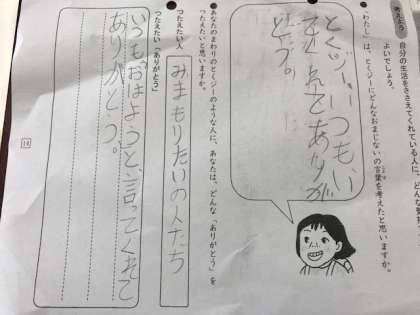 考えよう
自分の生活をささえてくれている人に、どんな
よいでしょう。
「わたし」は、とくジーにどんなおまじないの言葉を考えたと思いますか。
とくジーいつも、い
てくれてありが
とう。
●あなたのまわりのとくジーのような人に、あなたは、どんな「ありがとう」を
つたえたいと思いますか。
つたえたい人
みまもりたいの人たち
つたえたい「ありがとう」
いつもおはようと、言ってくれて
ありがとう。
14